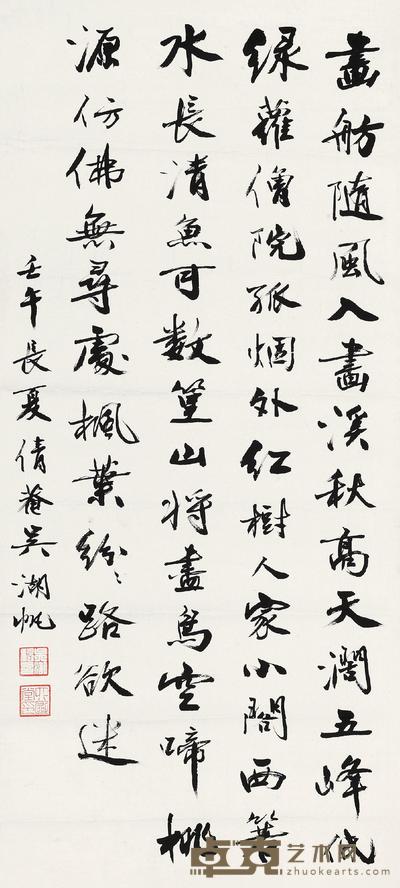 畫舫隨風入畫溪秋高天濶五峰低
緑蘿僧院孤烟外紅樹人家小閣西箬
水長清魚可數篁山將盡鳥空啼桃
源仿佛無尋處楓葉紛〻路欲迷
壬午長夏倩菴吴湖帆
卓克艺术网
zhuokearts.com